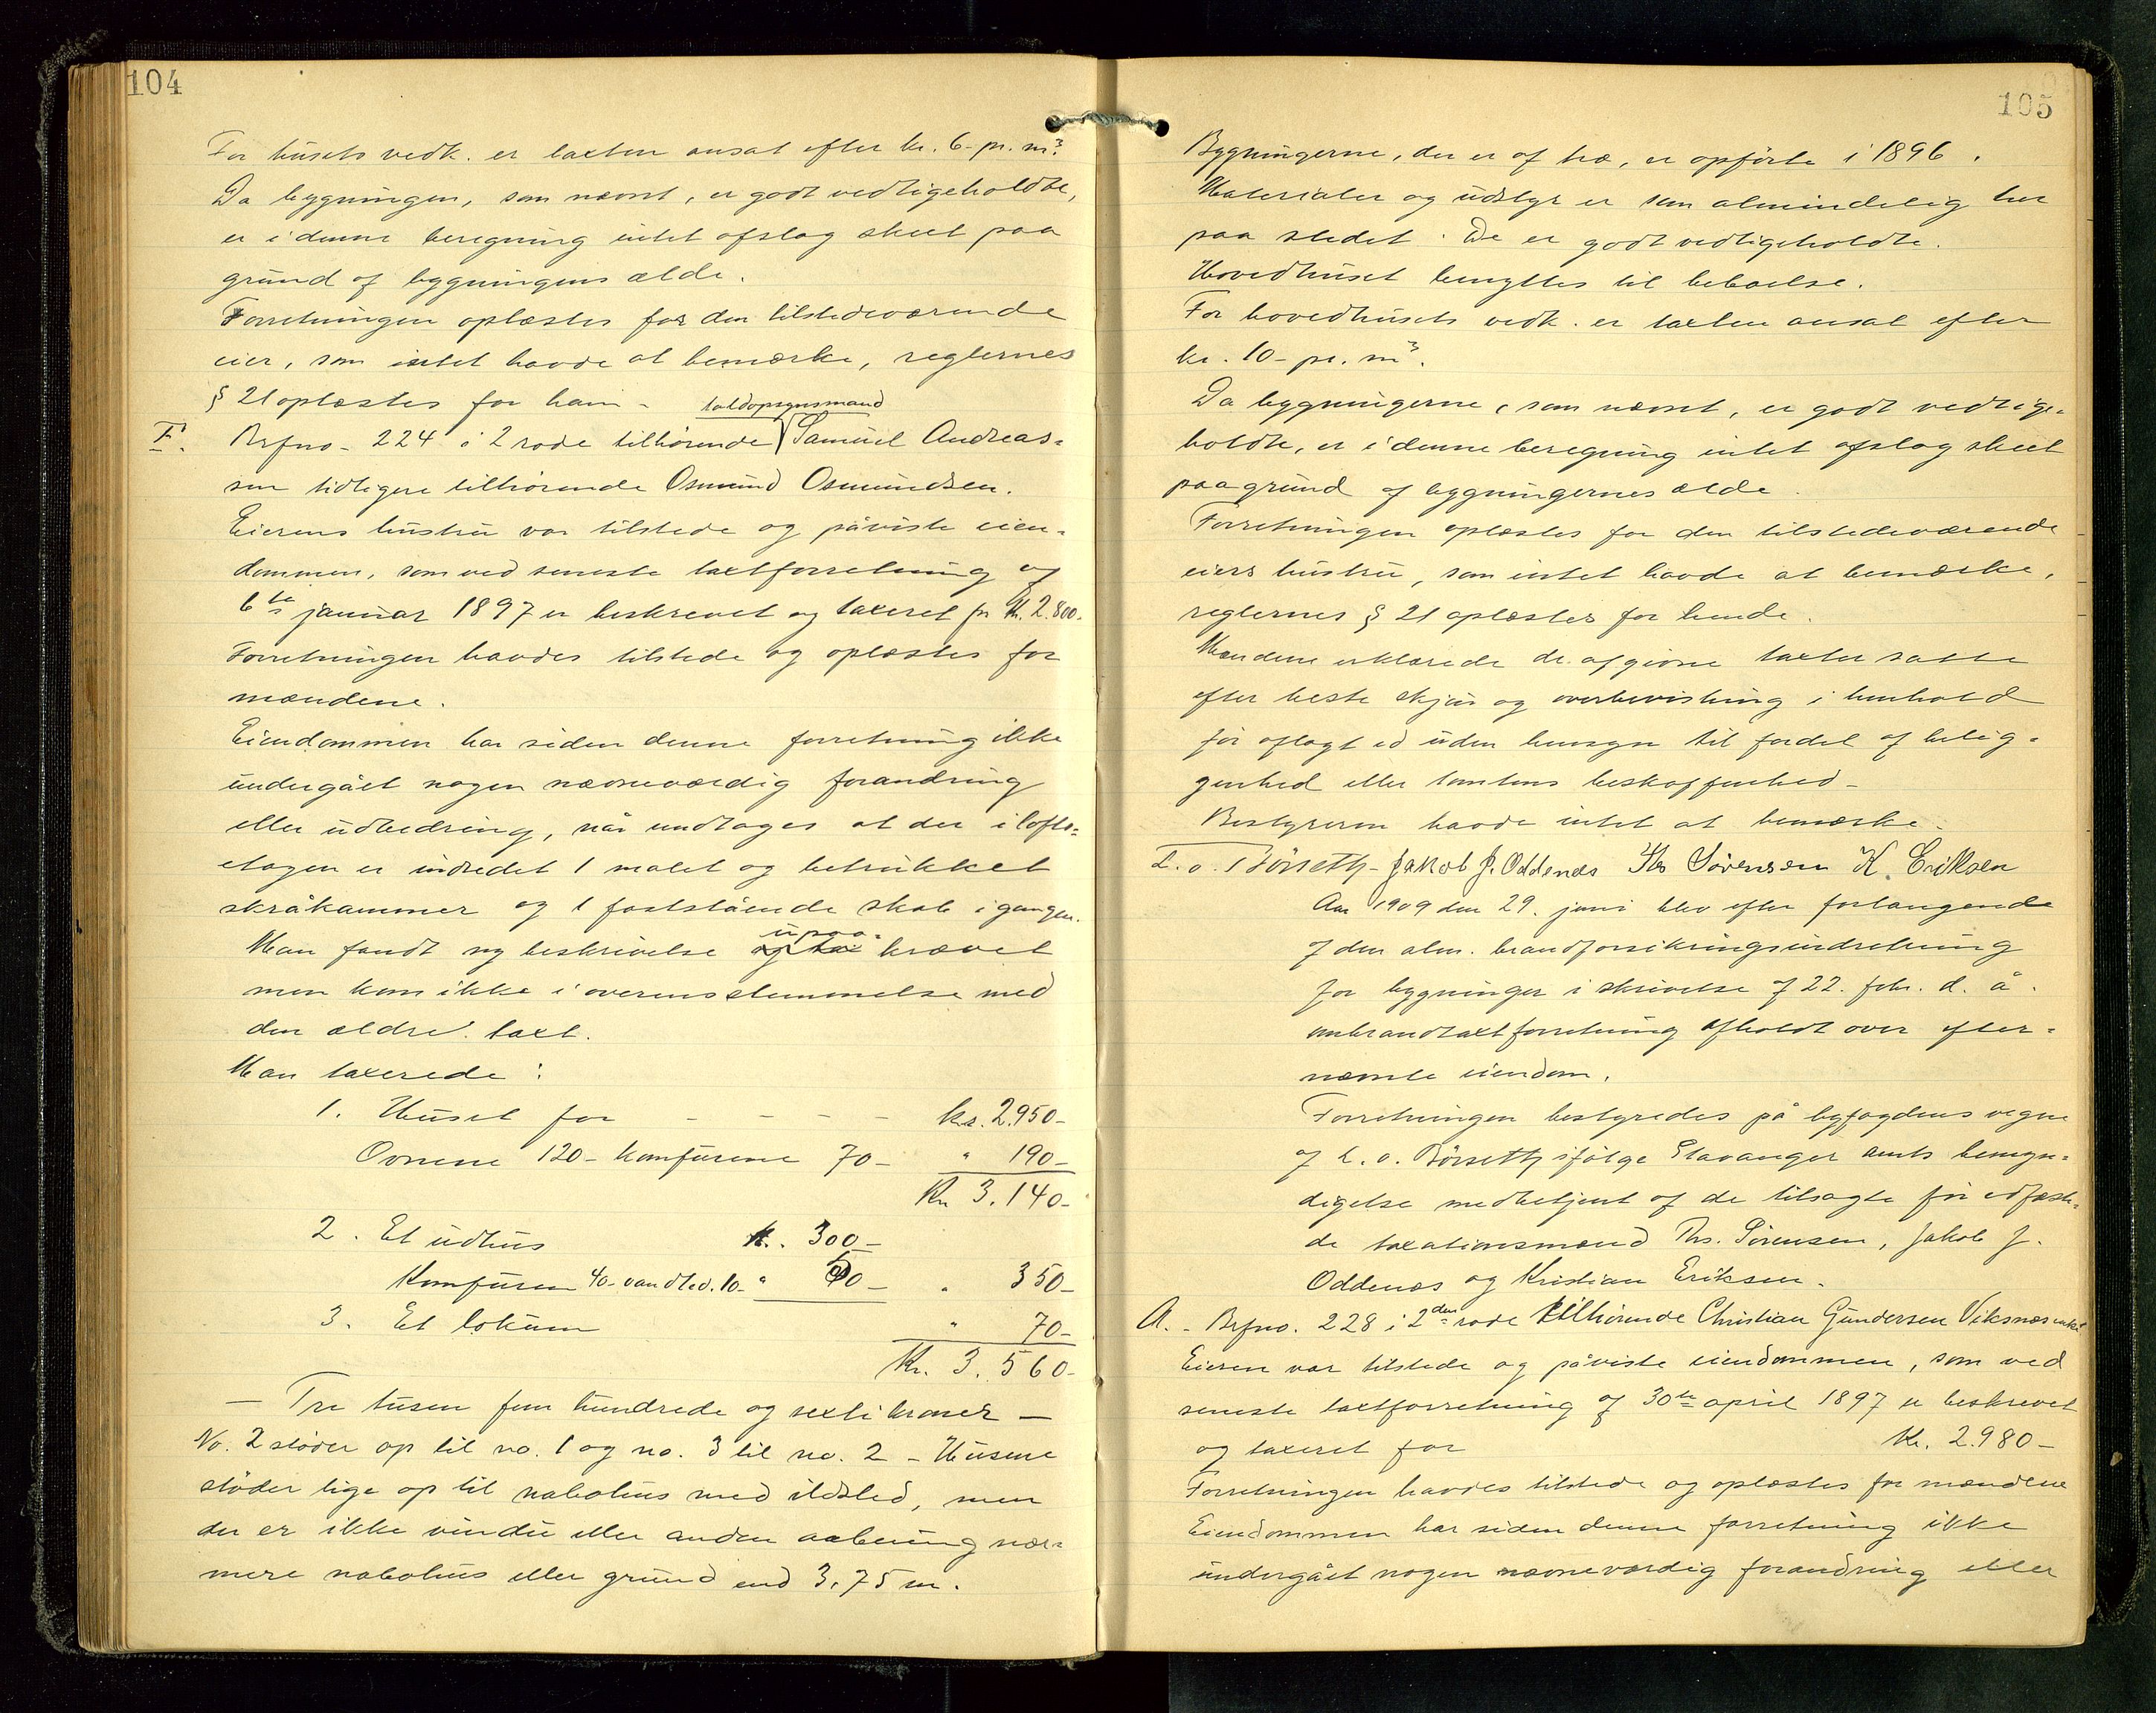 104
For husets vedk. er taxten ansat efter kr. 6- pr. m³.
Da bygningen, som nævnt, er godt vedligeholdte,
er i denne beregning intet afslag skeet paa
grund af bygningens ælde.
Forretningen oplæstes for den tilstedeværende
eier, som intet havde at bemærke, reglernes
§ 21 oplæstes for ham -
toldopsynsmand
F. Brfno - 224 i 2 rode tilhørende Samuel Andreas-
sen tidligere tilhørende Osmund Osmundsen.
Eierens hustru var tilstede og påviste eien-
dommen, som ved seneste taxtforretning af
6te januar 1897 er beskrevet og taxeret for Kr. 2.800.
Forretningen havdes tilstede og oplæstes for
mændene.
Eiendommen har siden denne forretning ikke
undergået nogen nævneværdig forandring
eller udbedring, når undtages at der i lofts-
etagen er indredet 1 malet og betrukket
skråkammer og 1 faststående skab i gangen.
upaa-
Man fandt ny beskrivelse krævet
men kom ikke i overensstemmelse med
den ældre taxt.
Man taxerede:
1. Huset for - - - - kr. 2.950-
Ovnene 120- komfurene 70- " 190-
Kr 3.140-
2. Et udhus kr. 300-
Komfuren 40- vandled. 10- " 50- " 350-
3. Et lokum " 70-
Kr. 3.560-
- Tre tusen fem hundrede og sexti kroner -
No. 2 støder op til no. 1 og no. 3 til no. 2 - Husene
støder lige op til nabohus med ildsted, men
der er ikke vindu eller anden aabning nær-
mere nabohus eller grund end 3,75 m.
105
Bygningerne, der er af træ, er opførte i 1896.
Materialer og udstyr er som almindelig her
paa stedet. De er godt vedligeholdte.
Hovedhuset benyttes til beboelse.
For hovedhusets vedk. er taxten ansat efter
kr. 10- pr. m³.
Da bygningerne, som nævnt, er godt vedlige-
holdte, er i denne beregning intet afslag skeet
paa grund af bygningernes ælde.
Forretningen oplæstes for den tilstedeværende
eiers hustru, som intet havde at bemærke,
reglernes § 21 oplæstes for hende.
Mændene erklærede de afgivne taxter satte
efter beste skjøn og overbevisning i henhold
før aflagt ed uden hensyn til fordel af belig-
genhed eller tomtens beskaffenhed -
Bestyreren havde intet at bemærke.
L. o. Börseth - Jakob J. Oddenæs Ths Sörensen K. Eriksen
Aar 1909 den 29. juni blev efter forlangende
af den alm. brandforsikringsindretning
for bygninger i skrivelse af 22. febr. d. å.
ombrandtaxtforretning afholdt over efter-
nævnte eiendom.
Forretningen bestyredes på byfogdens vegne
af L. o. Börseth ifølge Stavanger amts bemyn-
digelse medbetjent af de tilsagte før edfæste-
de taxationsmænd Ths. Sörensen, Jakob J.
Oddenæs og Kristian Eriksen.
A. - Brfno. 228 i 2den rode tilhørende Christian Gundersen Viksnæs enke
Eieren var tilstede og påviste eiendommen, som ved
seneste taxtforretning af 30te april 1897 er beskrevet
og taxeret for Kr. 2.980-
Forretningen havdes tilstede og oplæstes for mændene
Eiendommen har siden denne forretning ikke
undergået nogen nævneværdig forandring eller